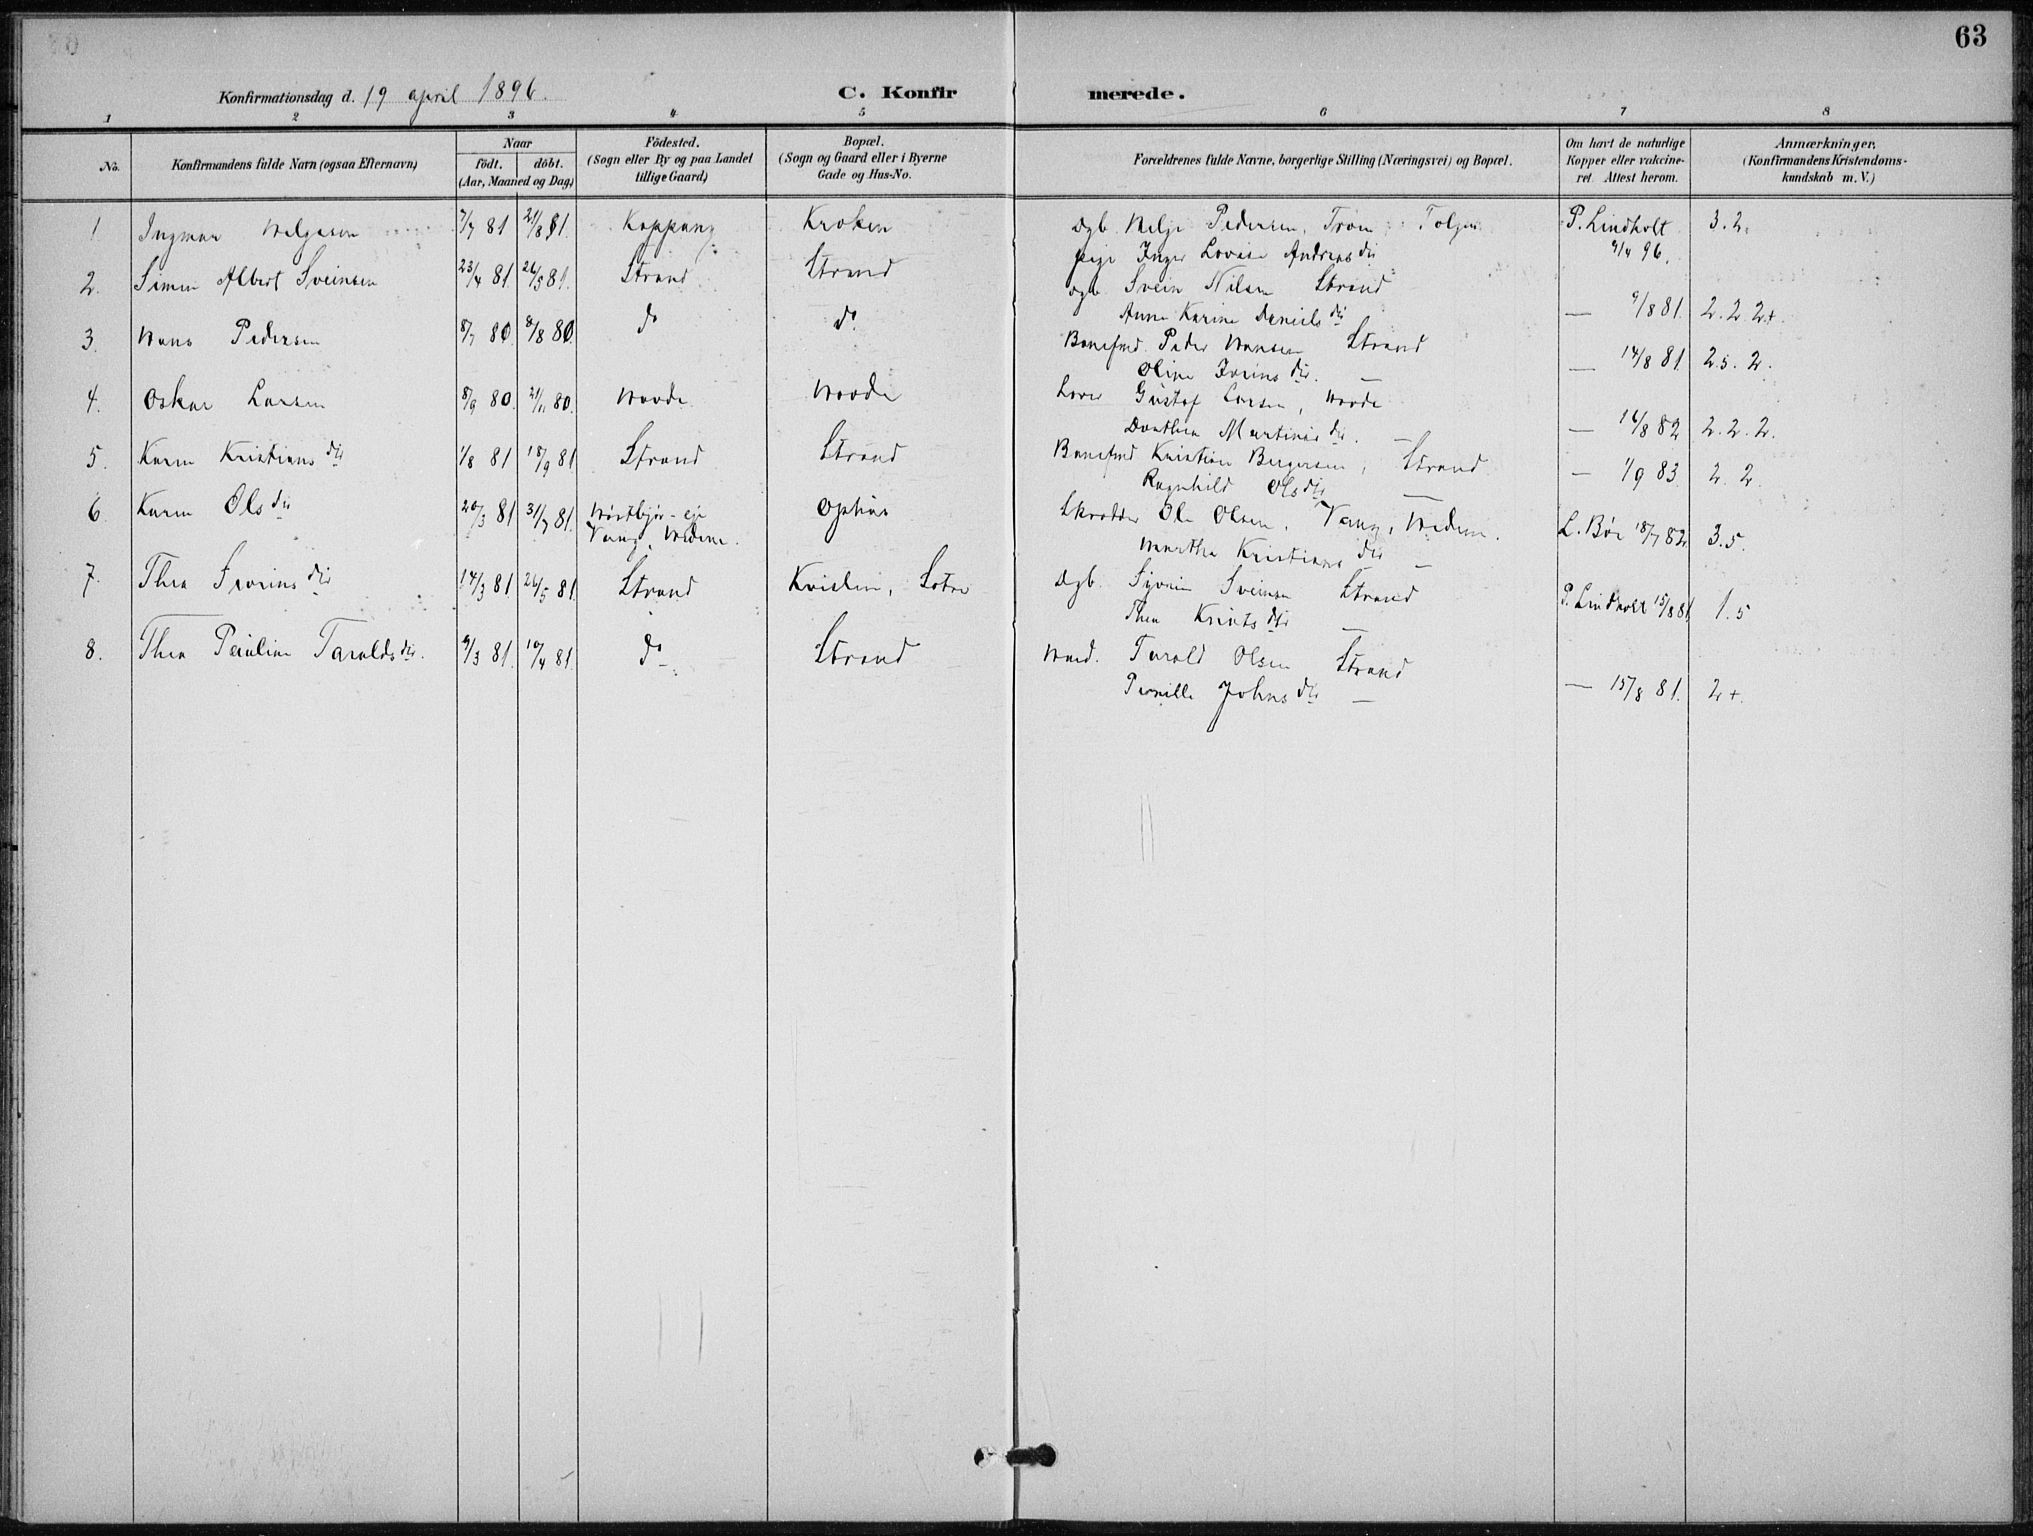 63
Konfirmationsdag d. 19 april 1896.
C. Konfirmerede.
1 2 3 4 5 6 7 8
No.
Konfirmandens fulde Navn (ogsaa Efternavn)
Naar
födt. döbt.
(Aar, Maaned og Dag)
Födested.
(Sogn eller By og paa Landet
tillige Gaard)
Bopæl.
(Sogn og Gaard eller i Byerne
Gade og Hus-No.
Forældrenes fulde Navne, borgerlige Stilling (Næringsvei) og Bopæl.
Om havt de naturlige
Kopper eller vakcine-
ret. Attest herom.
Anmærkninger,
(Konfirmandens Kristendoms-
kundskab m. V.)
1 Ingmar Helgesen 7/7 81 21/8 81. Koppang Kroken Dgb. Helge Pedersen, Trøen, Tolgen P. Lindholt 3. 2.
pige Inger Lovise Andreasdtr 9/4 96.
2. Simen Albert Sveinsen 23/4 81 26/5 81. Strand Strand Dgb. Svein Nilsen Strand
Anne Karine Danielsdtr — 9/8 81 2. 2. 2+.
3. Hans Pedersen 8/7 80. 8/8 80. do do. Banefmd. Peder Hansen Strand
Oline Iversdtr. — — 14/8 81. 2.5. 2.
4. Oskar Larsen 8/9 80. 21/11 80. Hovde Hovde Gustaf Larsen, Hovde
Dorthea Martinsdtr. — — 16/8 82 2. 2. 2.
5. Karen Kristiansdtr 1/8 81 18/9 81 Strand Strand Banefmd Kristian Bergersen, Strand
Ragnhild Olsdtr — — 1/9 83. 2. 2.
6. Karen Olsdtr 20/3 81 31/7 81. eje Ophus Skrædder Ole Olsen, Vang, Hedem.
Vang, Hedem. Martha Kristiansdtr — L. Bøe 18/7 82. 3.5.
7. Thea Syverinsdtr 14/3 81. 26/5 81. Strand Kvislen, Sotre Dgb. Syverin Sveinsen Strand
Thea — P. Lindholt 15/8 81. 1.5
8. Thea Pauline Taraldsdtr. 9/3 81. 10/4 81. do Strand Hmd. Tarald Olsen Strand
Pernille Johnsdtr — — 15/8 81. 2+.